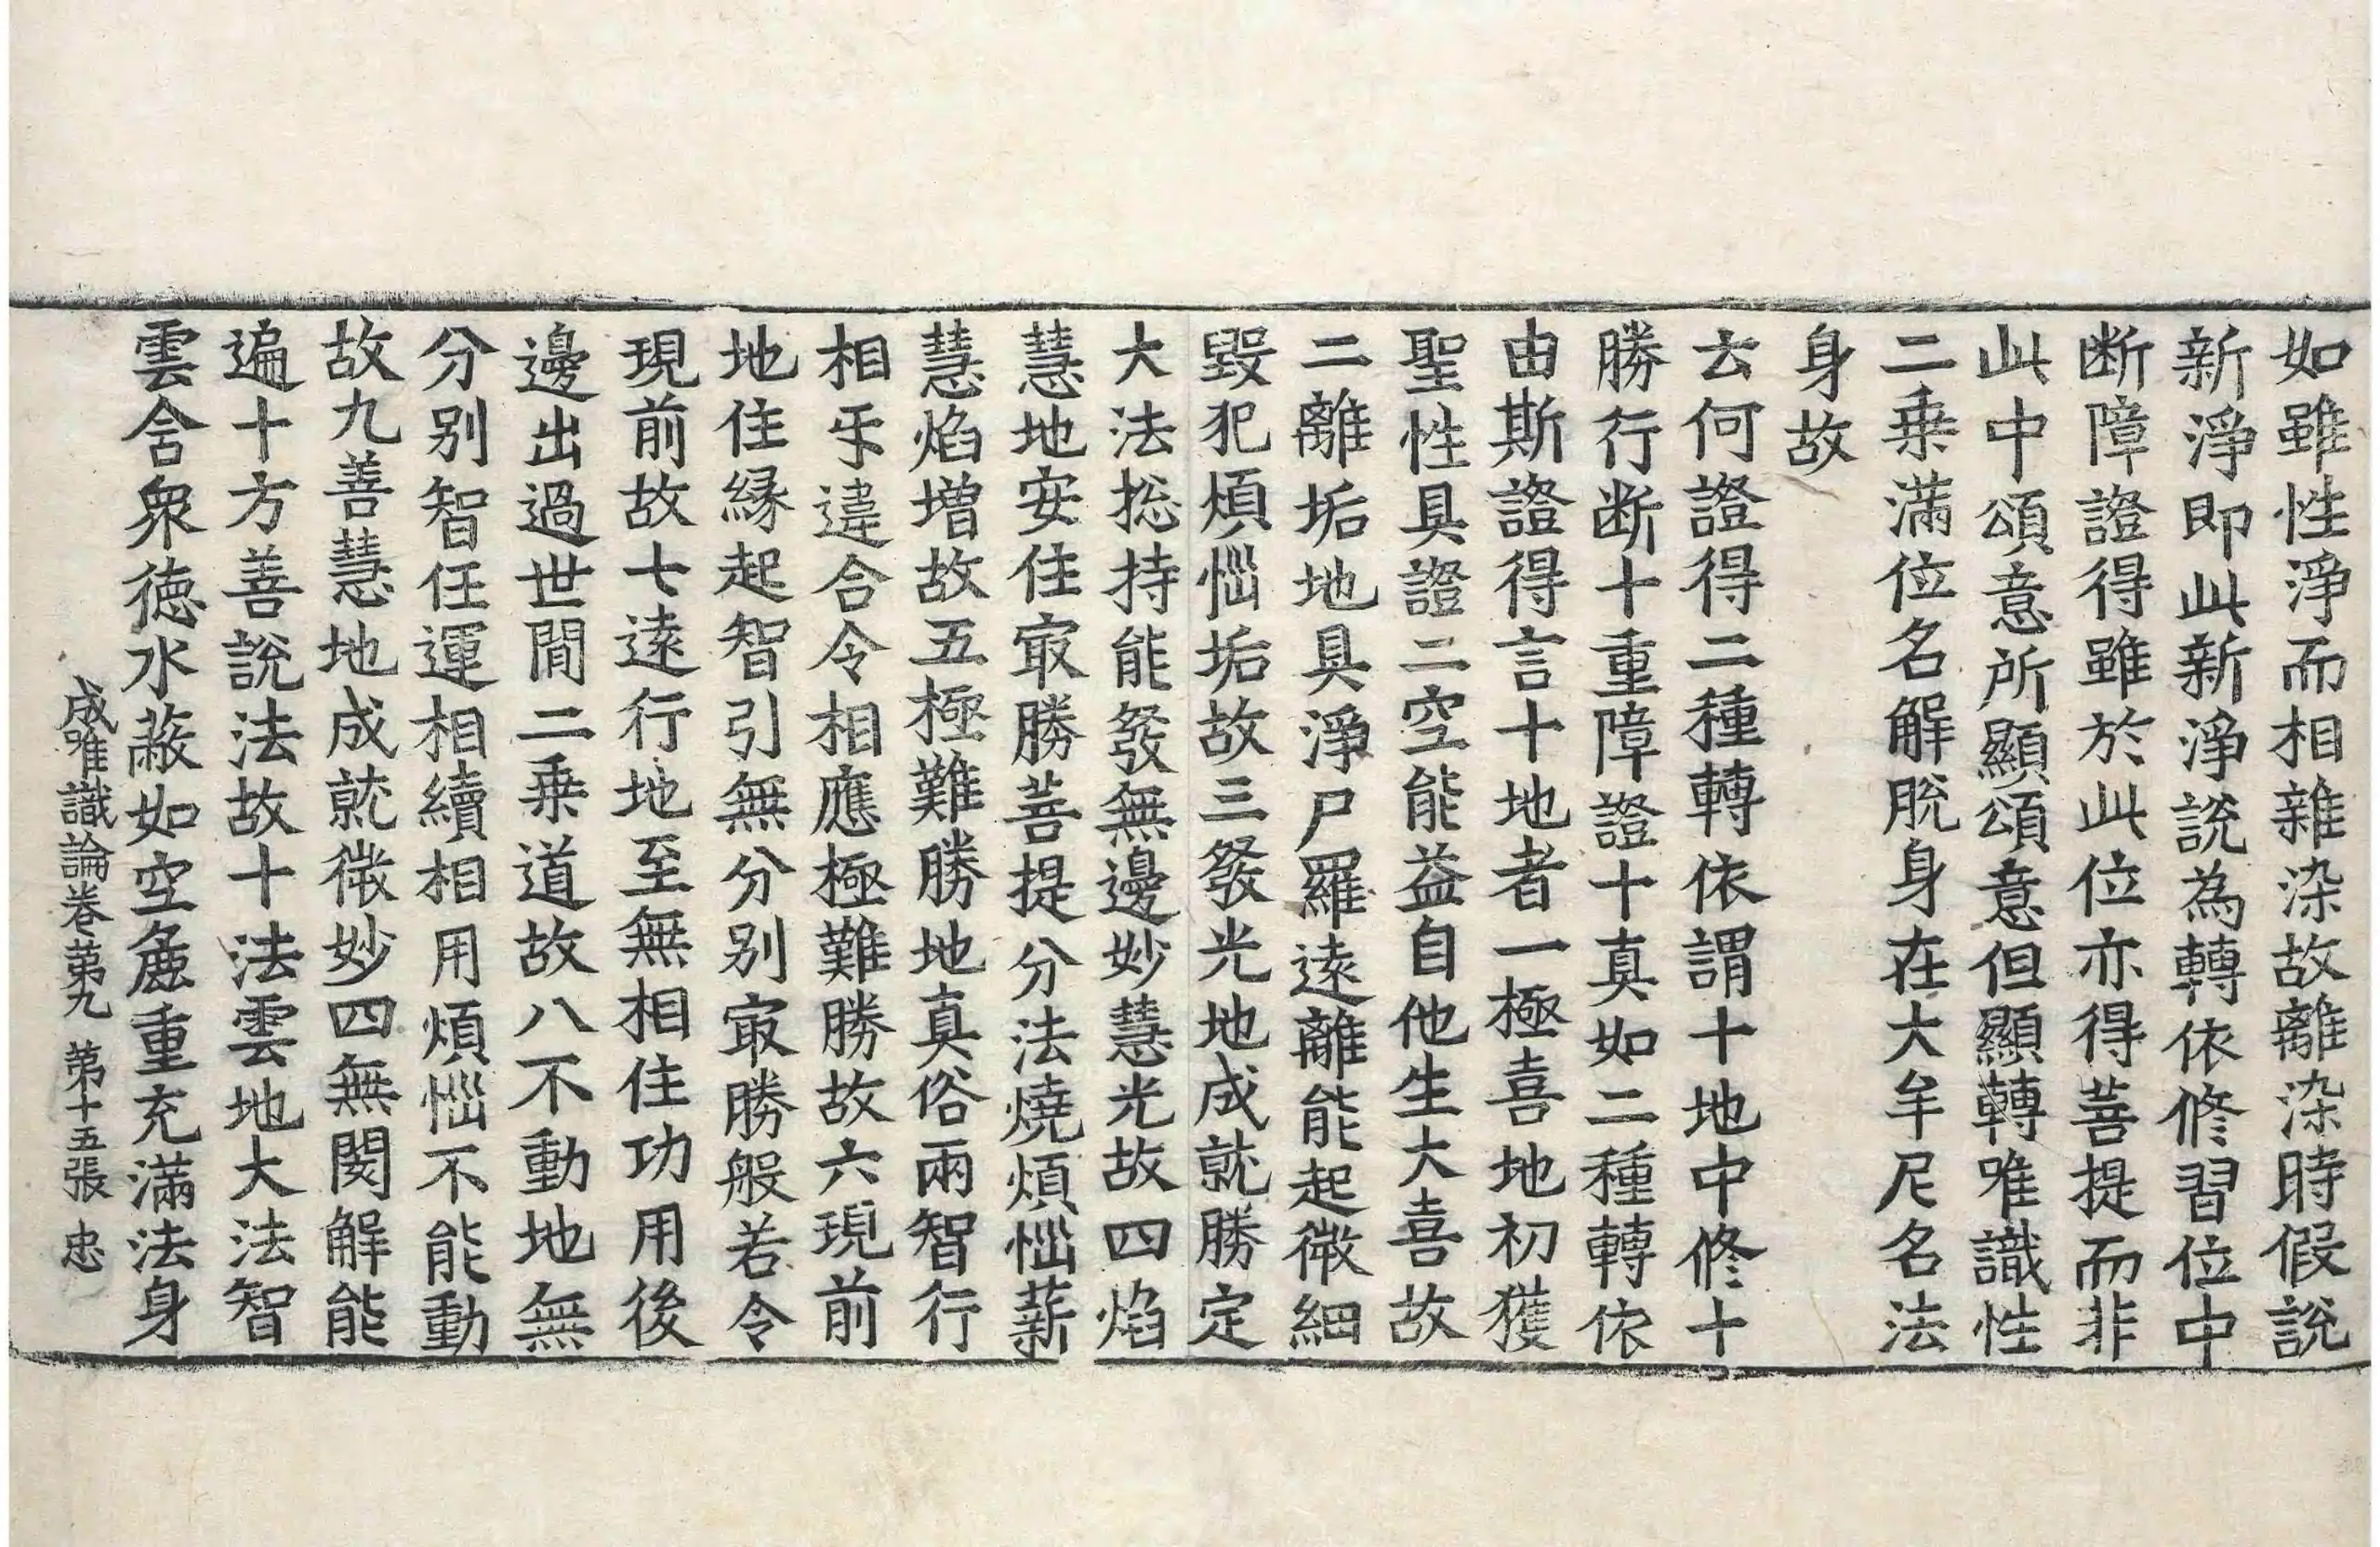 如雖性淨而相雜染故離染時假說
新淨即此新淨說為轉依修習位中
断障證得雖於此位亦得菩提而非
此中頌意所顯頌意但顯轉唯識性
二乗滿位名解脫身在大牟尼名法
身故
云何證得二種轉依謂十地中修十
勝行断十重障證十真如二種轉依
由斯證得言十地者一極喜地初獲
聖性具證二空能益自他生大喜故
二離垢地具淨尸羅遠離能起微細
毀犯煩惱垢故三發光地成就勝定
大法捴持能發無邊妙慧光故四焰
慧地安住㝡勝菩提分法燒煩惱薪
慧焰增故五極難勝地真俗兩智行
相㸦違合令相應極難勝故六現前
地住緣起智引無分别㝡勝般若令
現前故七遠行地至無相住功用後
邊出過世間二乗道故八不動地無
分别智任運相續相用煩惱不能動
故九善慧地成就微妙四無閡解能
遍十方善說法故十法雲地大法智
雲含衆徳水蔽如空麁重充滿法身
成唯識論卷第九 第十五張 忠